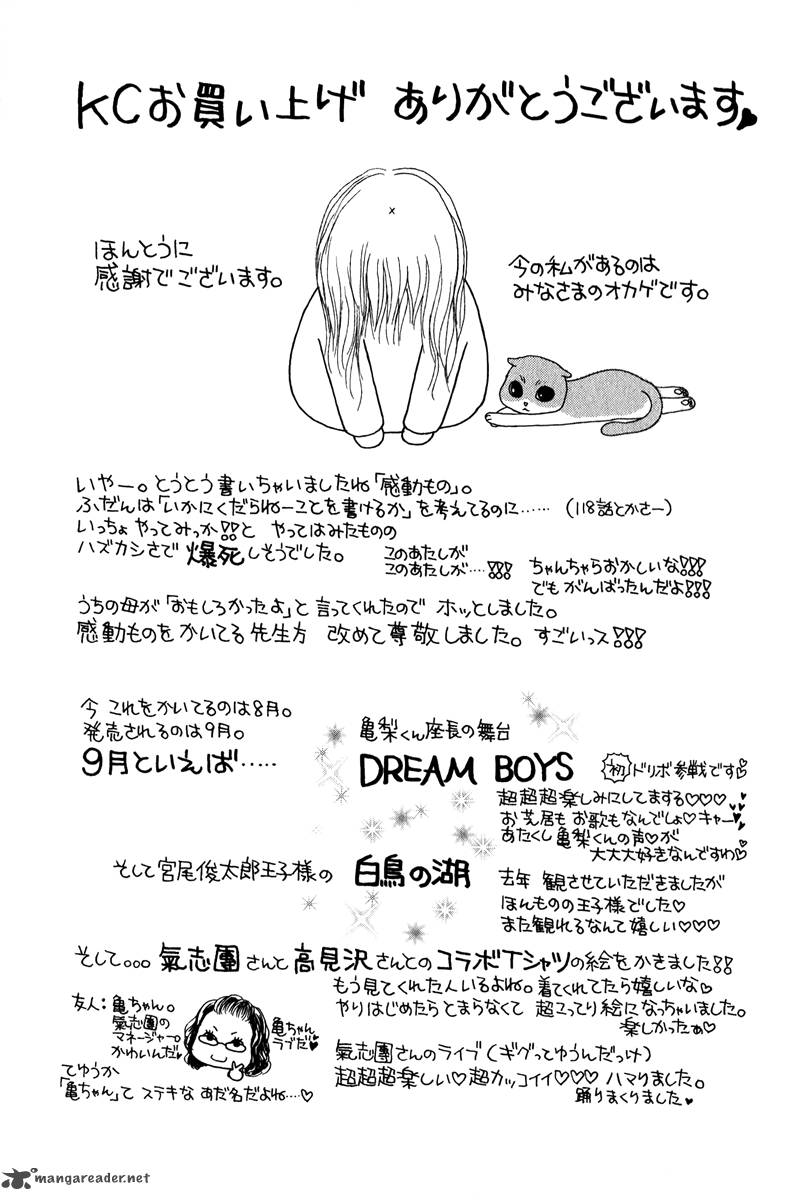 KCお買い上げ ありがとうございます♥
ほんとうに
感謝でございます。
今の私があるのは
みなさまのオカゲです。
いやー。とうとう書いちゃいましたね「感動もの」。
ふだんは「いかにくだらねーことを書けるか」を考えてるのに……（118話とかさー）
いっちょやってみっか!!と やってはみたものの
ハズカシさで爆死しそうでした。
このあたしが
このあたしが…!!!
ちゃんちゃらおかしいな!!!
でもがんばったんだよ!!!
うちの母が「おもしろかったよ」と言ってくれたので ホッとしました。
感動ものをかいてる先生方 改めて尊敬しました。すごいっス!!!
今 これをかいてるのは8月。
発売されるのは9月。
9月といえば……
亀梨くん座長の舞台
DREAM BOYS
初 ドリボ参戦です♡
超超超楽しみにしてまする♡♡♡
お芝居も お歌もなんでしょ♡キャー♡
あたくし亀梨くんの声♡が
大大大好きなんですわ♡
そして宮尾俊太郎王子様の 白鳥の湖
去年 観させていただきましたが
ほんものの王子様でした♡
また観れるなんて嬉しい♡♡♡
そして。。。氣志團さんと高見沢さんとのコラボTシャツの絵をかきました!!
もう見てくれた人いるよね。着てくれてたら嬉しいな♡
やりはじめたらとまらなくて 超こってり絵になっちゃいました。
楽しかったぁ♡
友人：亀ちゃん。
氣志團の
マネージャー。
かわいんだ♥
亀ちゃん
ラブだ♥
てゆうか
「亀ちゃん」て ステキな あだ名だよね…♡
氣志團さんのライブ（ギグってゆうんだっけ）
超超超楽しい♡超カッコイイ♡♡♡ ハマりました。
踊りまくりました♥
mangareader.net